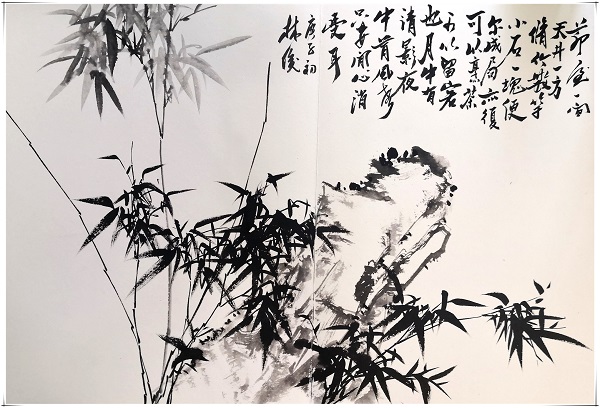 茆屋一间
天井一方
脩竹数竿
小石一塊便
尔成局亦復
可以烹茶
可以留客
也月中有
清影夜
中有風聲
只要閒心消
受耳
庚子初
林俊